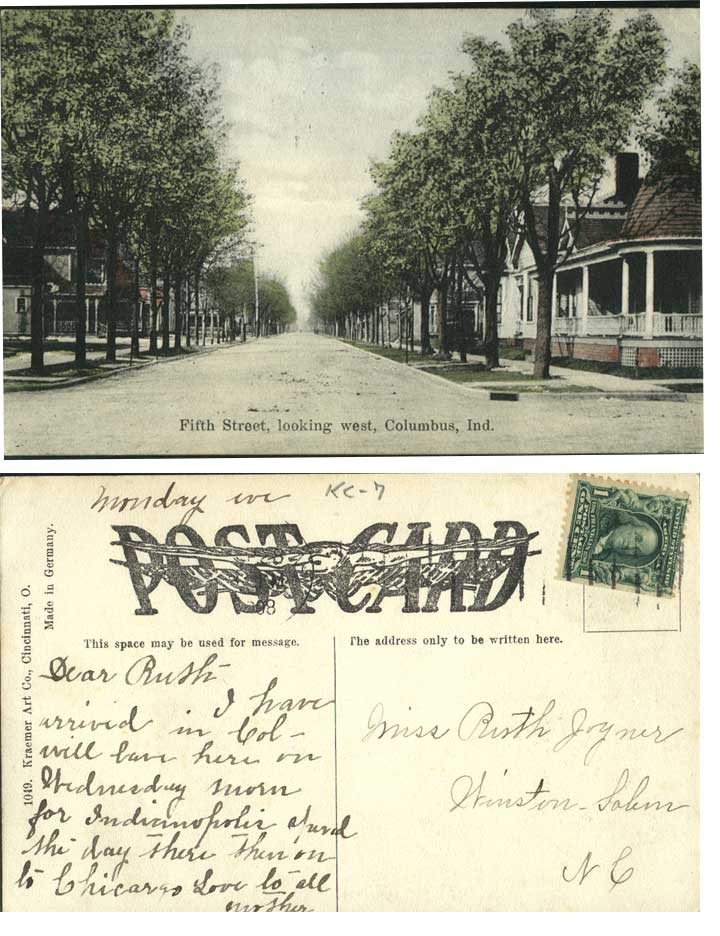 Fifth Street, looking west, Columbus, Ind.
Monday eve
KC-7
POST CARD
1049. Kraemer Art Co., Cincinnati, O.
Made in Germany.
This space may be used for message.
The address only to be written here.
Dear Ruth-
I have
arrived in Col-
will leave here on
Wednesday morn
for Indianopolis
the day there then on
to Chicargo Love to all
mother
Miss Ruth Joyner
Winston-Salem
NC